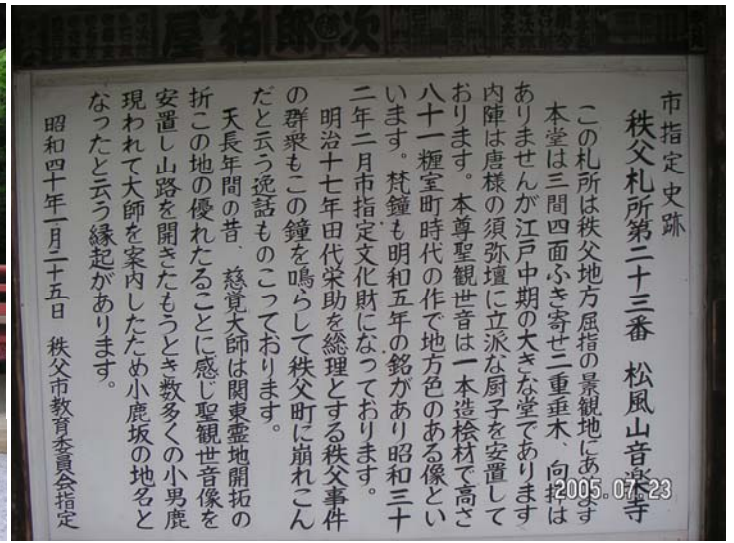 次郎柏屋
市指定史跡
秩父札所第二十三番 松風山音楽寺
この札所は秩父地方屈指の景観地にあります
本堂は三間四面ふき寄せ二重垂木、向拝は
ありませんが江戸中期の大きな堂であります
内陣は唐様の須弥壇に立派な厨子を安置して
おります。本尊聖観世音は一本造桧材で高さ
八十一糎室町時代の作で地方色のある像とい
います。梵鐘も明和五年の銘があり昭和三十
二年二月市指定文化財になっております。
明治十七年田代栄助を総理とする秩父事件
の群衆もこの鐘を鳴らして秩父町に崩れこん
だと云う逸話ものこっております。
天長年間の昔、慈覚大師は関東霊地開拓の
折この地の優れたることに感じ聖観世音像を
安置し山路を開きたもうとき数多くの小男鹿
現われて大師を案内したため小鹿坂の地名と
なったと云う縁起があります。
昭和四十年一月二十五日 秩父市教育委員会指定
2005.07.23